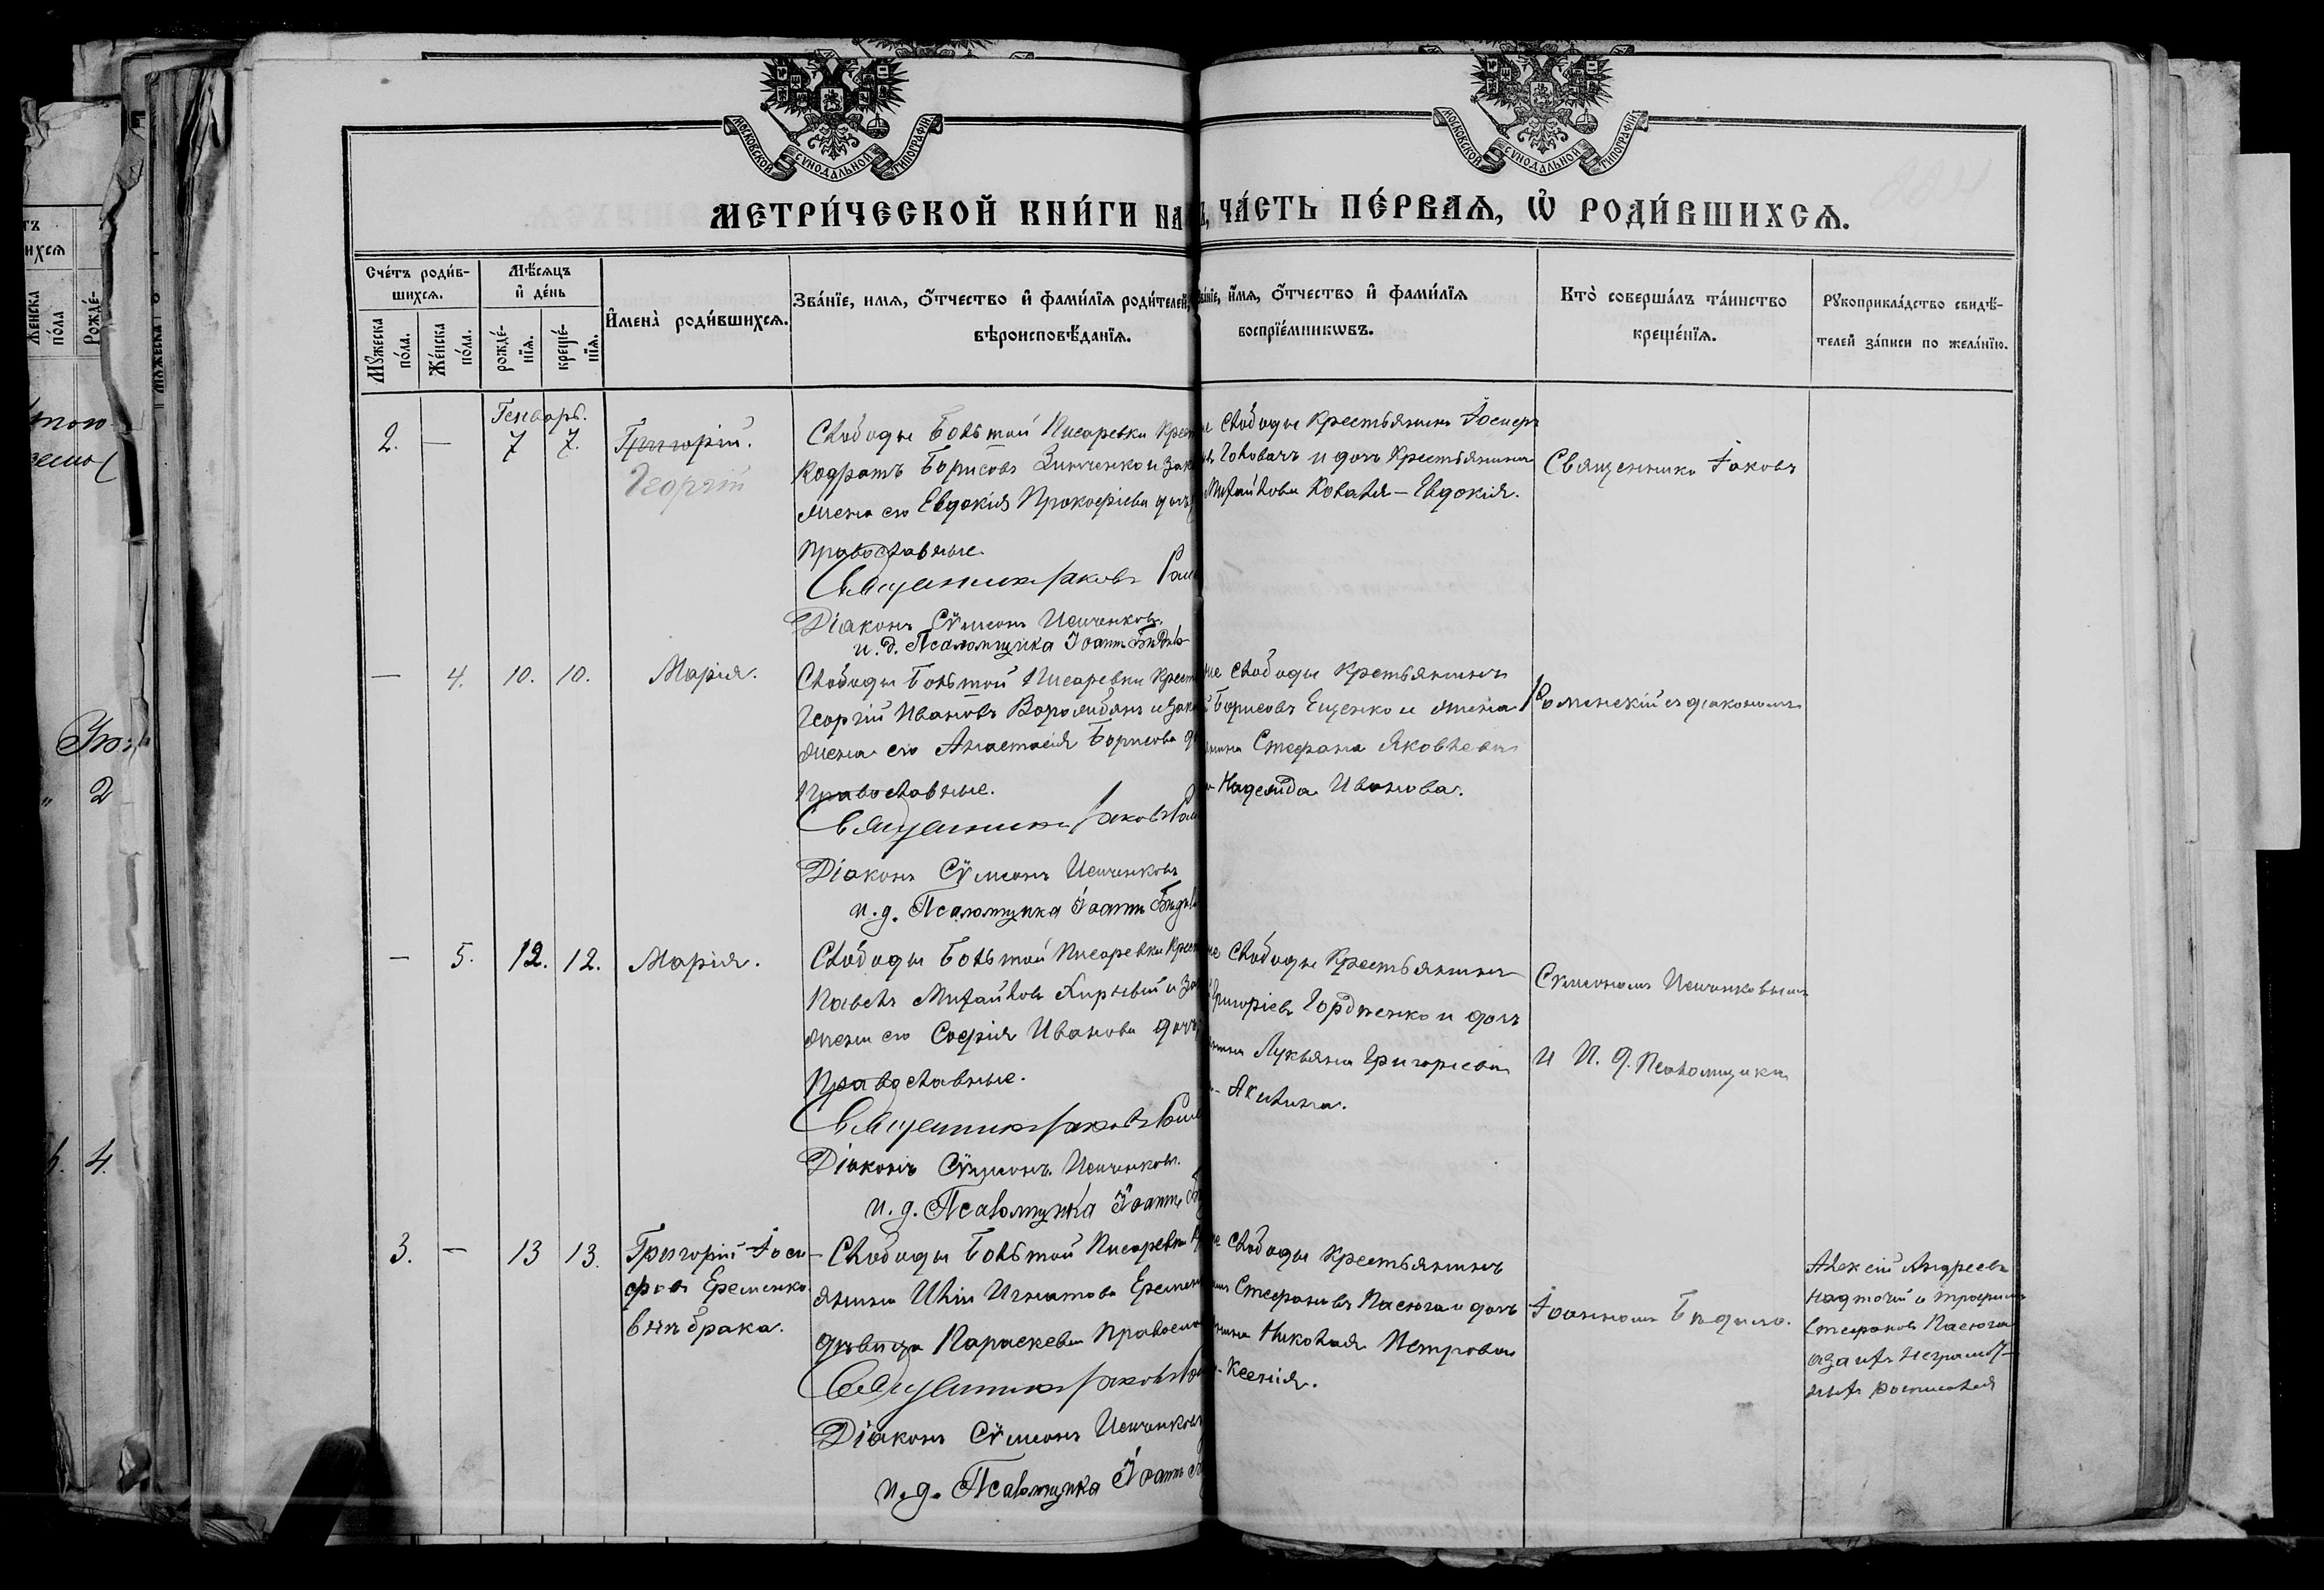 МОСКОВСКОЙ СѴНОДАЛЬНОЙ ТИПОГРАФІИ
МОСКОВСКОЙ СѴНОДАЛЬНОЙ ТИПОГРАФІИ
МЕТРИ́ЧЕСКОЙ КНИ́ГИ НА
ЧА́СТЬ ПЕ́РВАЯ, Ѡ҆ РОДИ́ВШИХСЯ.
Сче́тъ роди́в-
шихся.
Мꙋ́жеска по́ла.
Же́нска по́ла.
Мѣ́сяцъ
и҆ де́нь
рожде́-
нїя.
креще́-
нїя.
И҆мена̀ роди́вшихся.
Зва́нїе, имя, ѻ҆́тчество и҆ фами́лїя роди́телей,
вѣроисповѣ́данїя.
и҆́мя, ѻ҆́тчество и҆ фами́лїя
воспрїе́мникѡвъ.
Кто̀ соверша́лъ та́инство
креще́нїя.
Рꙋкоприкла́дство свидѣ́-
телей за́писи по жела́нїю.
Генварь.
2. — 7 7. Григорій.
Георгій
Слободы Большой Писаревки Крест
Кодратъ Борисовъ Зинченко и Зако
жена его Евдокія Прокофіева
Православные.
Священникъ Іаковъ
Діаконъ Сѵмеонъ Исиченковъ.
и. д. Псаломщика Іоаннъ
слободы Крестьянинъ Іосифъ
Головачъ и дочь Крестьянина
Михайлова Коваля — Евдокія.
Священникъ Іаковъ
— 4. 10. 10. Марія.
Слободы Большой Писаревки Крест
Георгій Ивановъ Ворожбянъ и Зако
жена его Анастасія Борисова
Православные.
Священникъ Іаковъ
Діаконъ Сѵмеонъ Исиченковъ
и. д. Псаломщика Іоаннъ
слободы Крестьянинъ
Борисовъ Ещенко и жена
Стефана Яковлева
Надежда Иванова.
Роменскій съ діакономъ
— 5. 12. 12. Марія.
Слободы Большой Писаревки Крест
Павелъ Михайловъ и За
жена его Софія Иванова
Православные.
Священникъ Іаковъ
Діаконъ Сѵмеонъ Исиченковъ.
и. д. Псаломщика Іоаннъ
слободы Крестьянинъ
Григоріевъ Гордіенко и дочь
Лукьяна Григоріева
— Акилина.
Сѵмеономъ Исиченковымъ
и И. д. Псаломщика
3. — 13 13. Григорій Іоси
фовъ Еременко
внѣ брака.
Слободы Большой Писаревки
янина Иліи Игнатова Еремен
дѣвица Параскева Правосла
Священникъ Іаковъ
Діаконъ Сѵмеонъ Исиченковъ
и. д. Псаломщика Іоаннъ
слободы Крестьянинъ
Стефановъ Пасюга и дочь
Николая Петрова
Ксенія.
Іоанномъ
Алексій Андреевъ
и Трофимъ
Стефановъ Пасюга
а за ихъ неграмот-
ныхъ росписался